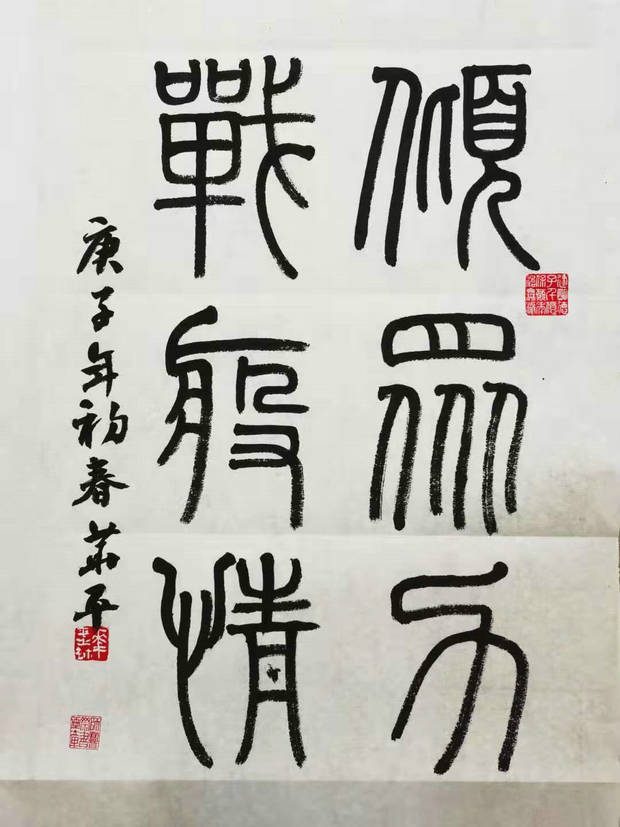 傾眾力
戰疫情
庚子年初春平